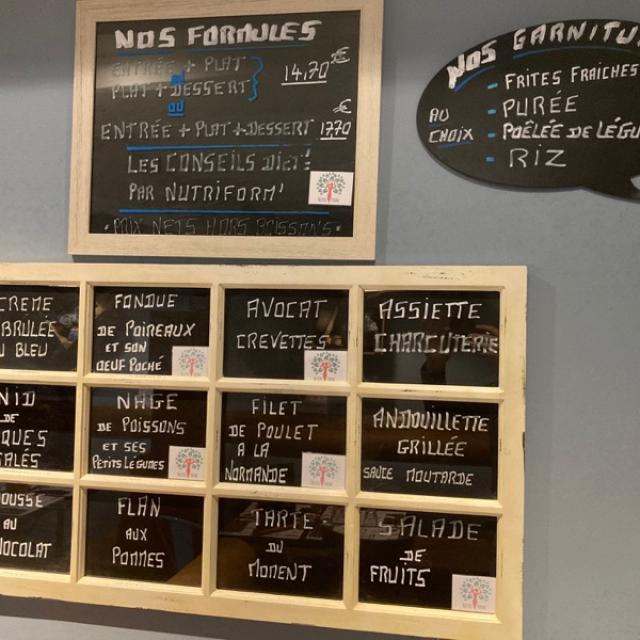 NOS FORMULES
ENTRÉE + PLAT
OU
PLAT + DESSERT
14,70€
OU
ENTRÉE + PLAT + DESSERT 17,70€
LES CONSEILS DIET'
PAR NUTRIFORM'
• PRIX NETS HORS BOISSONS •
NOS GARNITU
AU
CHOIX
- FRITES FRAICHES
- PURÉE
- POÊLÉE DE LÉGU
- RIZ
CREME
BRULÉE
U BLEU
FONDUE
DE POIREAUX
ET SON
OEUF POCHÉ
AVOCAT
CREVETTES
ASSIETTE
CHARCUTERIE
NID
DE
QUES
SALÉS
NAGE
DE POISSONS
ET SES
PETITS LÉGUMES
FILET
DE POULET
A LA
NORMANDE
ANDOUILLETTE
GRILLÉE
SAUCE MOUTARDE
OUSSE
AU
HOCOLAT
FLAN
AUX
POMMES
TARTE
DU
MOMENT
SALADE
DE
FRUITS